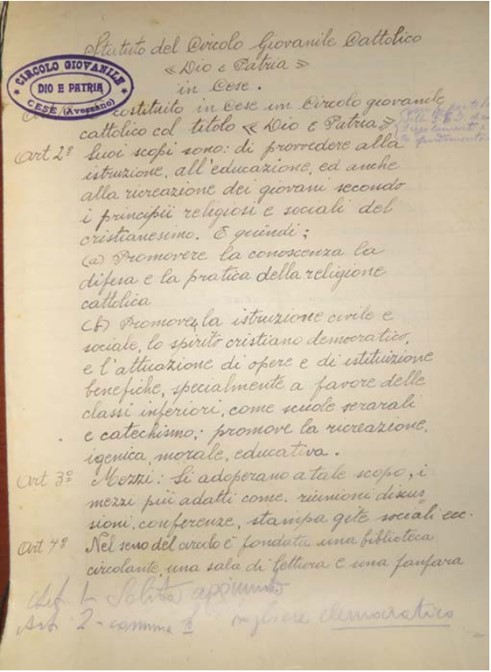 Statuto del Circolo Giovanile Cattolico
« Dio e Patria »
in Cese.
CIRCOLO GIOVANILE
DIO E PATRIA
CESE (Avezzano)
costituito in Cese un Circolo giovanile
cattolico col titolo « Dio e Patria »
Art 2º Suoi scopi sono: di provvedere alla
istruzione, all'educazione, ed anche
alla ricreazione dei giovani secondo
i principii religiosi e sociali del
cristianesimo. E quindi;
(a) Promovere la conoscenza la
difesa e la pratica della religione
cattolica
(b) Promove la istruzione civile e
sociale, lo spirito cristiano democratico,
e l'attuazione di opere e di istituizione
benefiche, specialmente a favore delle
classi inferiori, come scuole serarali
e catechismo; promove la ricreazione,
igenica, morale, educativa.
Art 3º Mezzi: Si adoperano a tale scopo, i
mezzi più adatti come. riunioni discus
sioni, conferenze, stampa gite sociali ecc.
Art 4º Nel seno del circolo è fondata una biblioteca
circolante, una sala di lettura e una fanfara
Art. 1-
Art. 2- comma togliere democratico